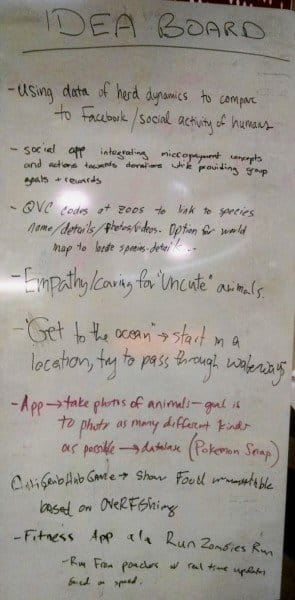 IDEA BOARD
- Using data of herd dynamics to compare
to Facebook/social activity of humans
- Social app integrating micropayment concepts
and actions towards donations while providing group
goals + rewards
- QVC codes at zoos to link to species
name/details/photos/videos. Option for world
map to locate species details..
- Empathy/caring for "Uncute" animals
- "Get to the ocean" → start in a
location, try to pass through waterways
- App → take photos of animals - goal is
to photo as many different kinds
as possible → database (Pokemon Snap)
Game → Show Food
based on OVERFishing
- Fitness App a'la Run Zombies Run
- Run From poachers w/ real time updates
based on speed.